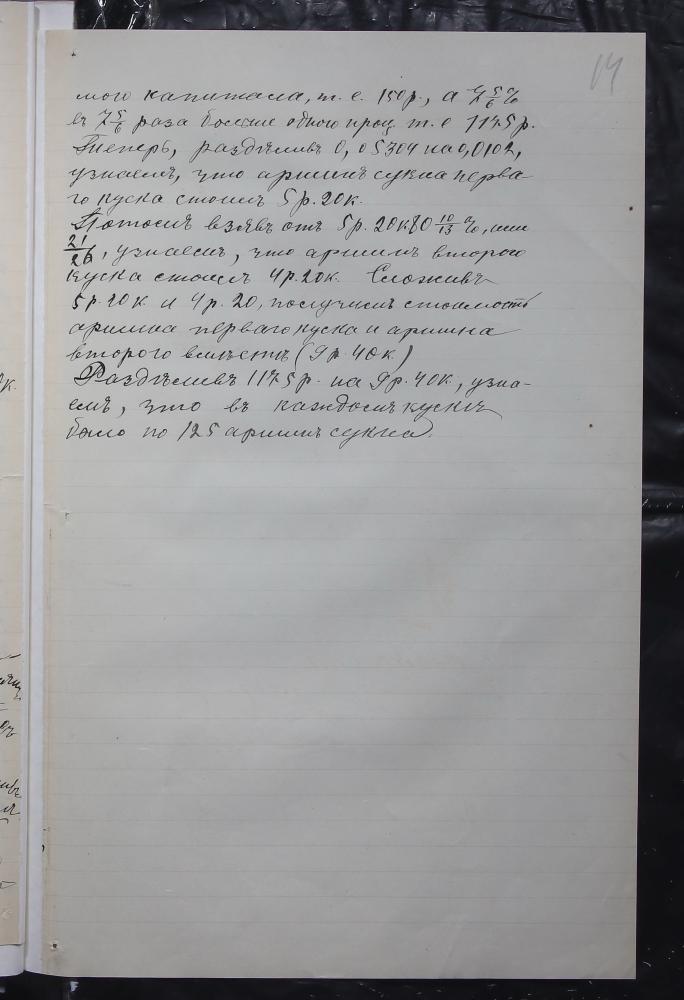 14
мого капитала, т. е. 150 р., а 7 5/6 %
въ 7 5/6 раза больше одного проц. т. е 1175 р.
Теперь, раздѣливъ 0,05304 на 0,0102,
узнаемъ, что аршинъ сукна перва-
го куска стоитъ 5 р. 20 к.
Потомъ взявъ отъ 5 р. 20 к 80 10/13 %, или
21/26, узнаемъ, что аршинъ второго
куска стоитъ 4 р. 20 к. Сложивъ
5 р. 20 к. и 4 р. 20, получимъ стоимость
аршина перваго куска и аршина
второго вмѣстѣ (9 р. 40 к.)
Раздѣливъ 1175 р. на 9 р. 40 к., узна-
емъ, что въ каждомъ кускѣ
было по 125 аршинъ сукна.